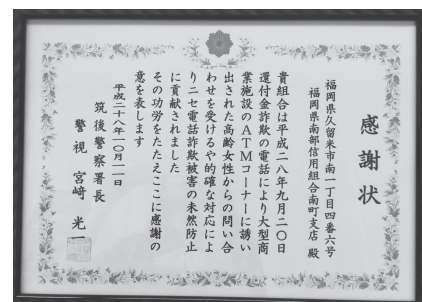 感謝状
福岡県久留米市南一丁目四番六号
福岡県南部信用組合南町支店 殿
貴組合は平成二八年九月二〇日
還付金詐欺の電話により大型商
業施設のATMコーナーに誘い
出された高齢女性からの問い合
わせを受けるや的確な対応によ
りニセ電話詐欺被害の未然防止
に貢献されました
その功労をたたえここに感謝の
意を表します
平成二十八年一〇月一一日
筑後警察署長
警視 宮﨑 光一